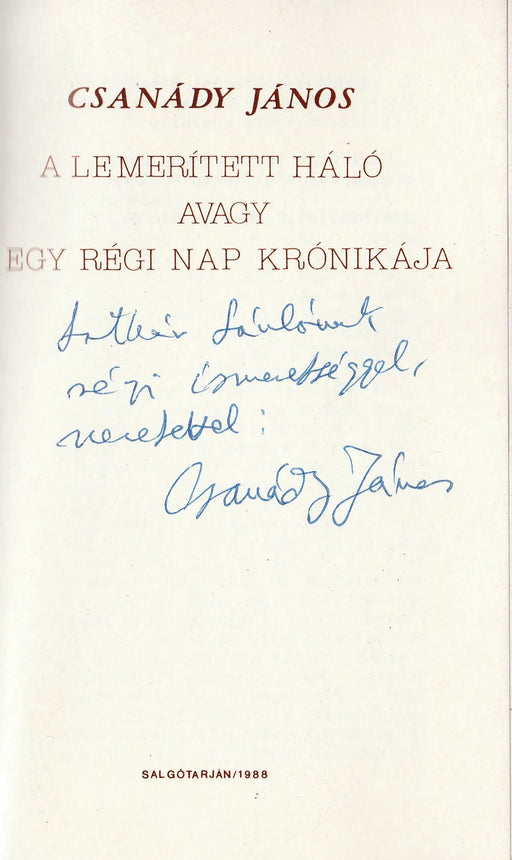 CSANÁDY JÁNOS
A LEMERÍTETT HÁLÓ
AVAGY
EGY RÉGI NAP KRÓNIKÁJA
régi ismeretséggel,
szeretettel:
Csanády János
SALGÓTARJÁN/1988